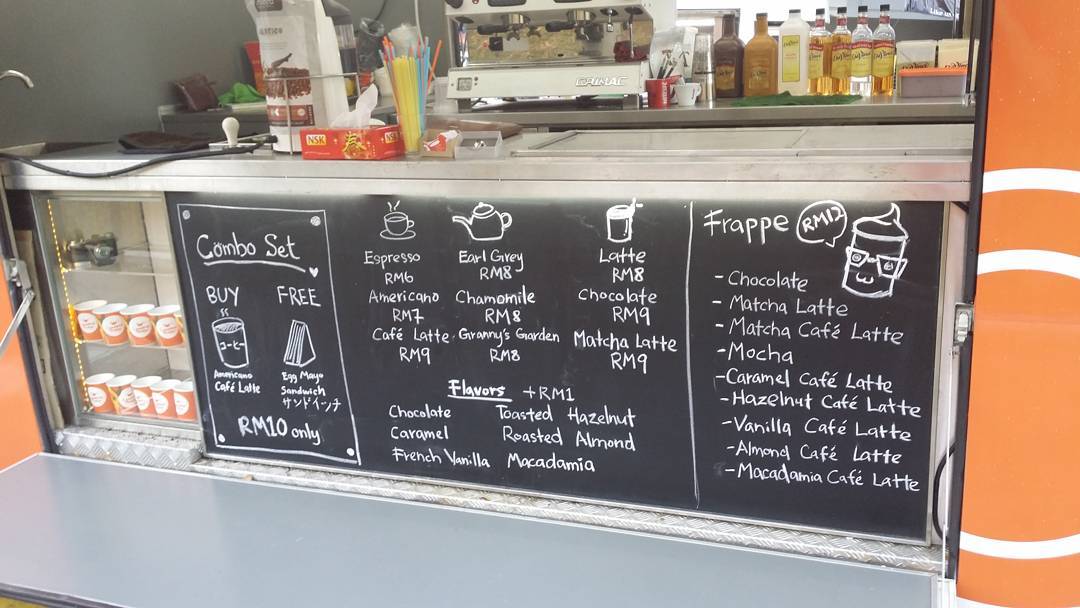 GRIMAC
NSK
NSK
Combo Set
BUY FREE
コーヒー
Americano
Café Latte
Egg Mayo
Sandwich
サンドイッチ
RM10 only
Espresso
RM6
Americano
RM7
Café Latte
RM9
Earl Grey
RM8
Chamomile
RM8
Granny's Garden
RM8
Latte
RM8
Chocolate
RM9
Matcha Latte
RM9
Flavors +RM1
Chocolate
Caramel
French Vanilla
Toasted Hazelnut
Roasted Almond
Macadamia
Frappe RM12
- Chocolate
- Matcha Latte
- Matcha Café Latte
- Mocha
- Caramel Café Latte
- Hazelnut Café Latte
- Vanilla Café Latte
- Almond Café Latte
- Macadamia Café Latte